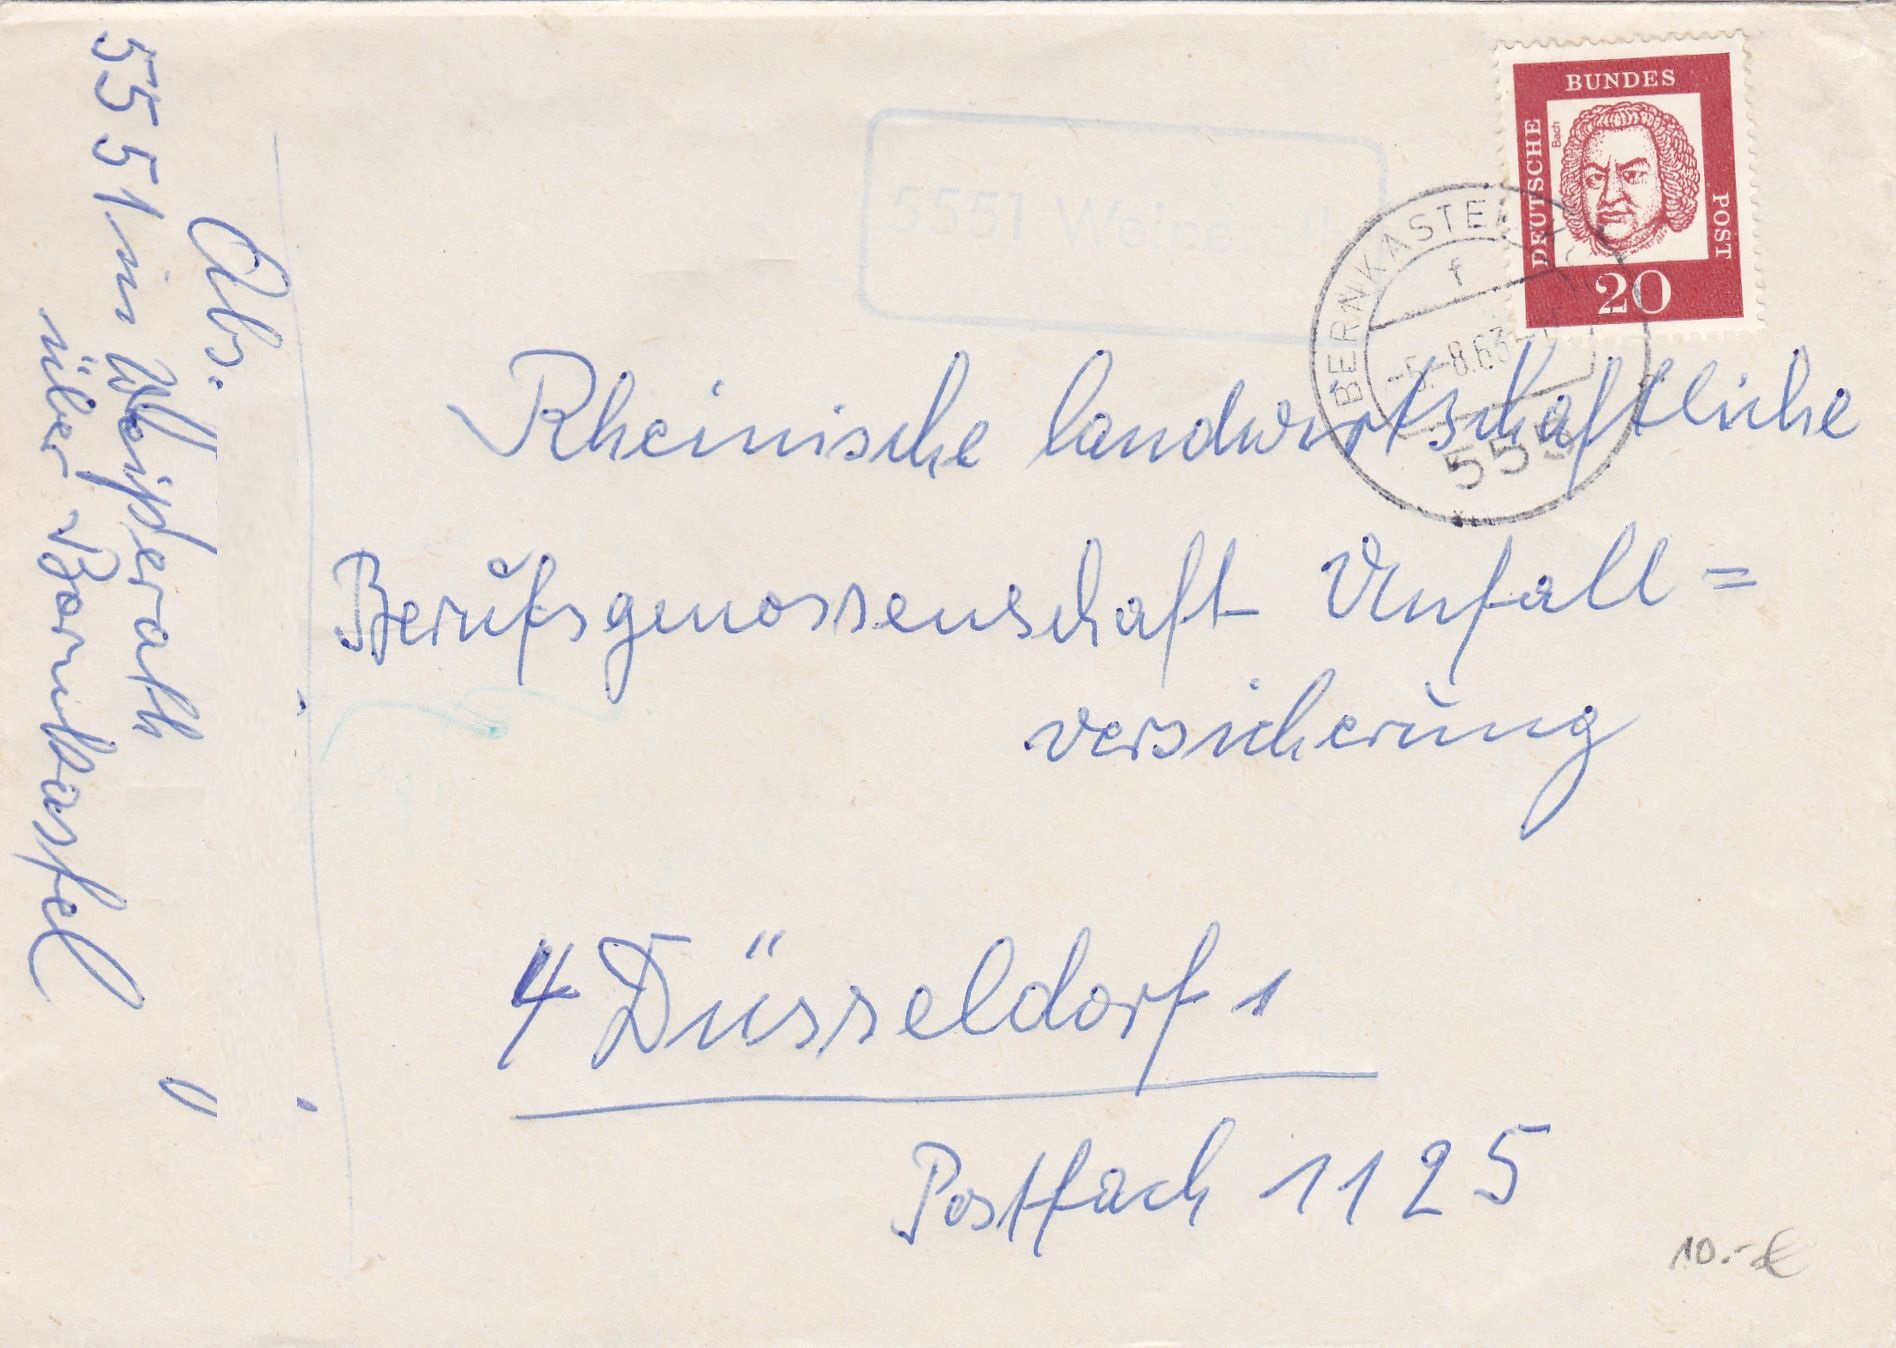 Abs.
5551 in Weiperath
über Bernkastel
5551 Weiperath
BUNDES
DEUTSCHE
POST
Bach
20
BERNKASTEL
f
-5.-8.63
555
Rheinische landwirtschaftliche
Berufsgenossenschaft Unfall=
versicherung
4 Düsseldorf 1
Postfach 1125
10.-€